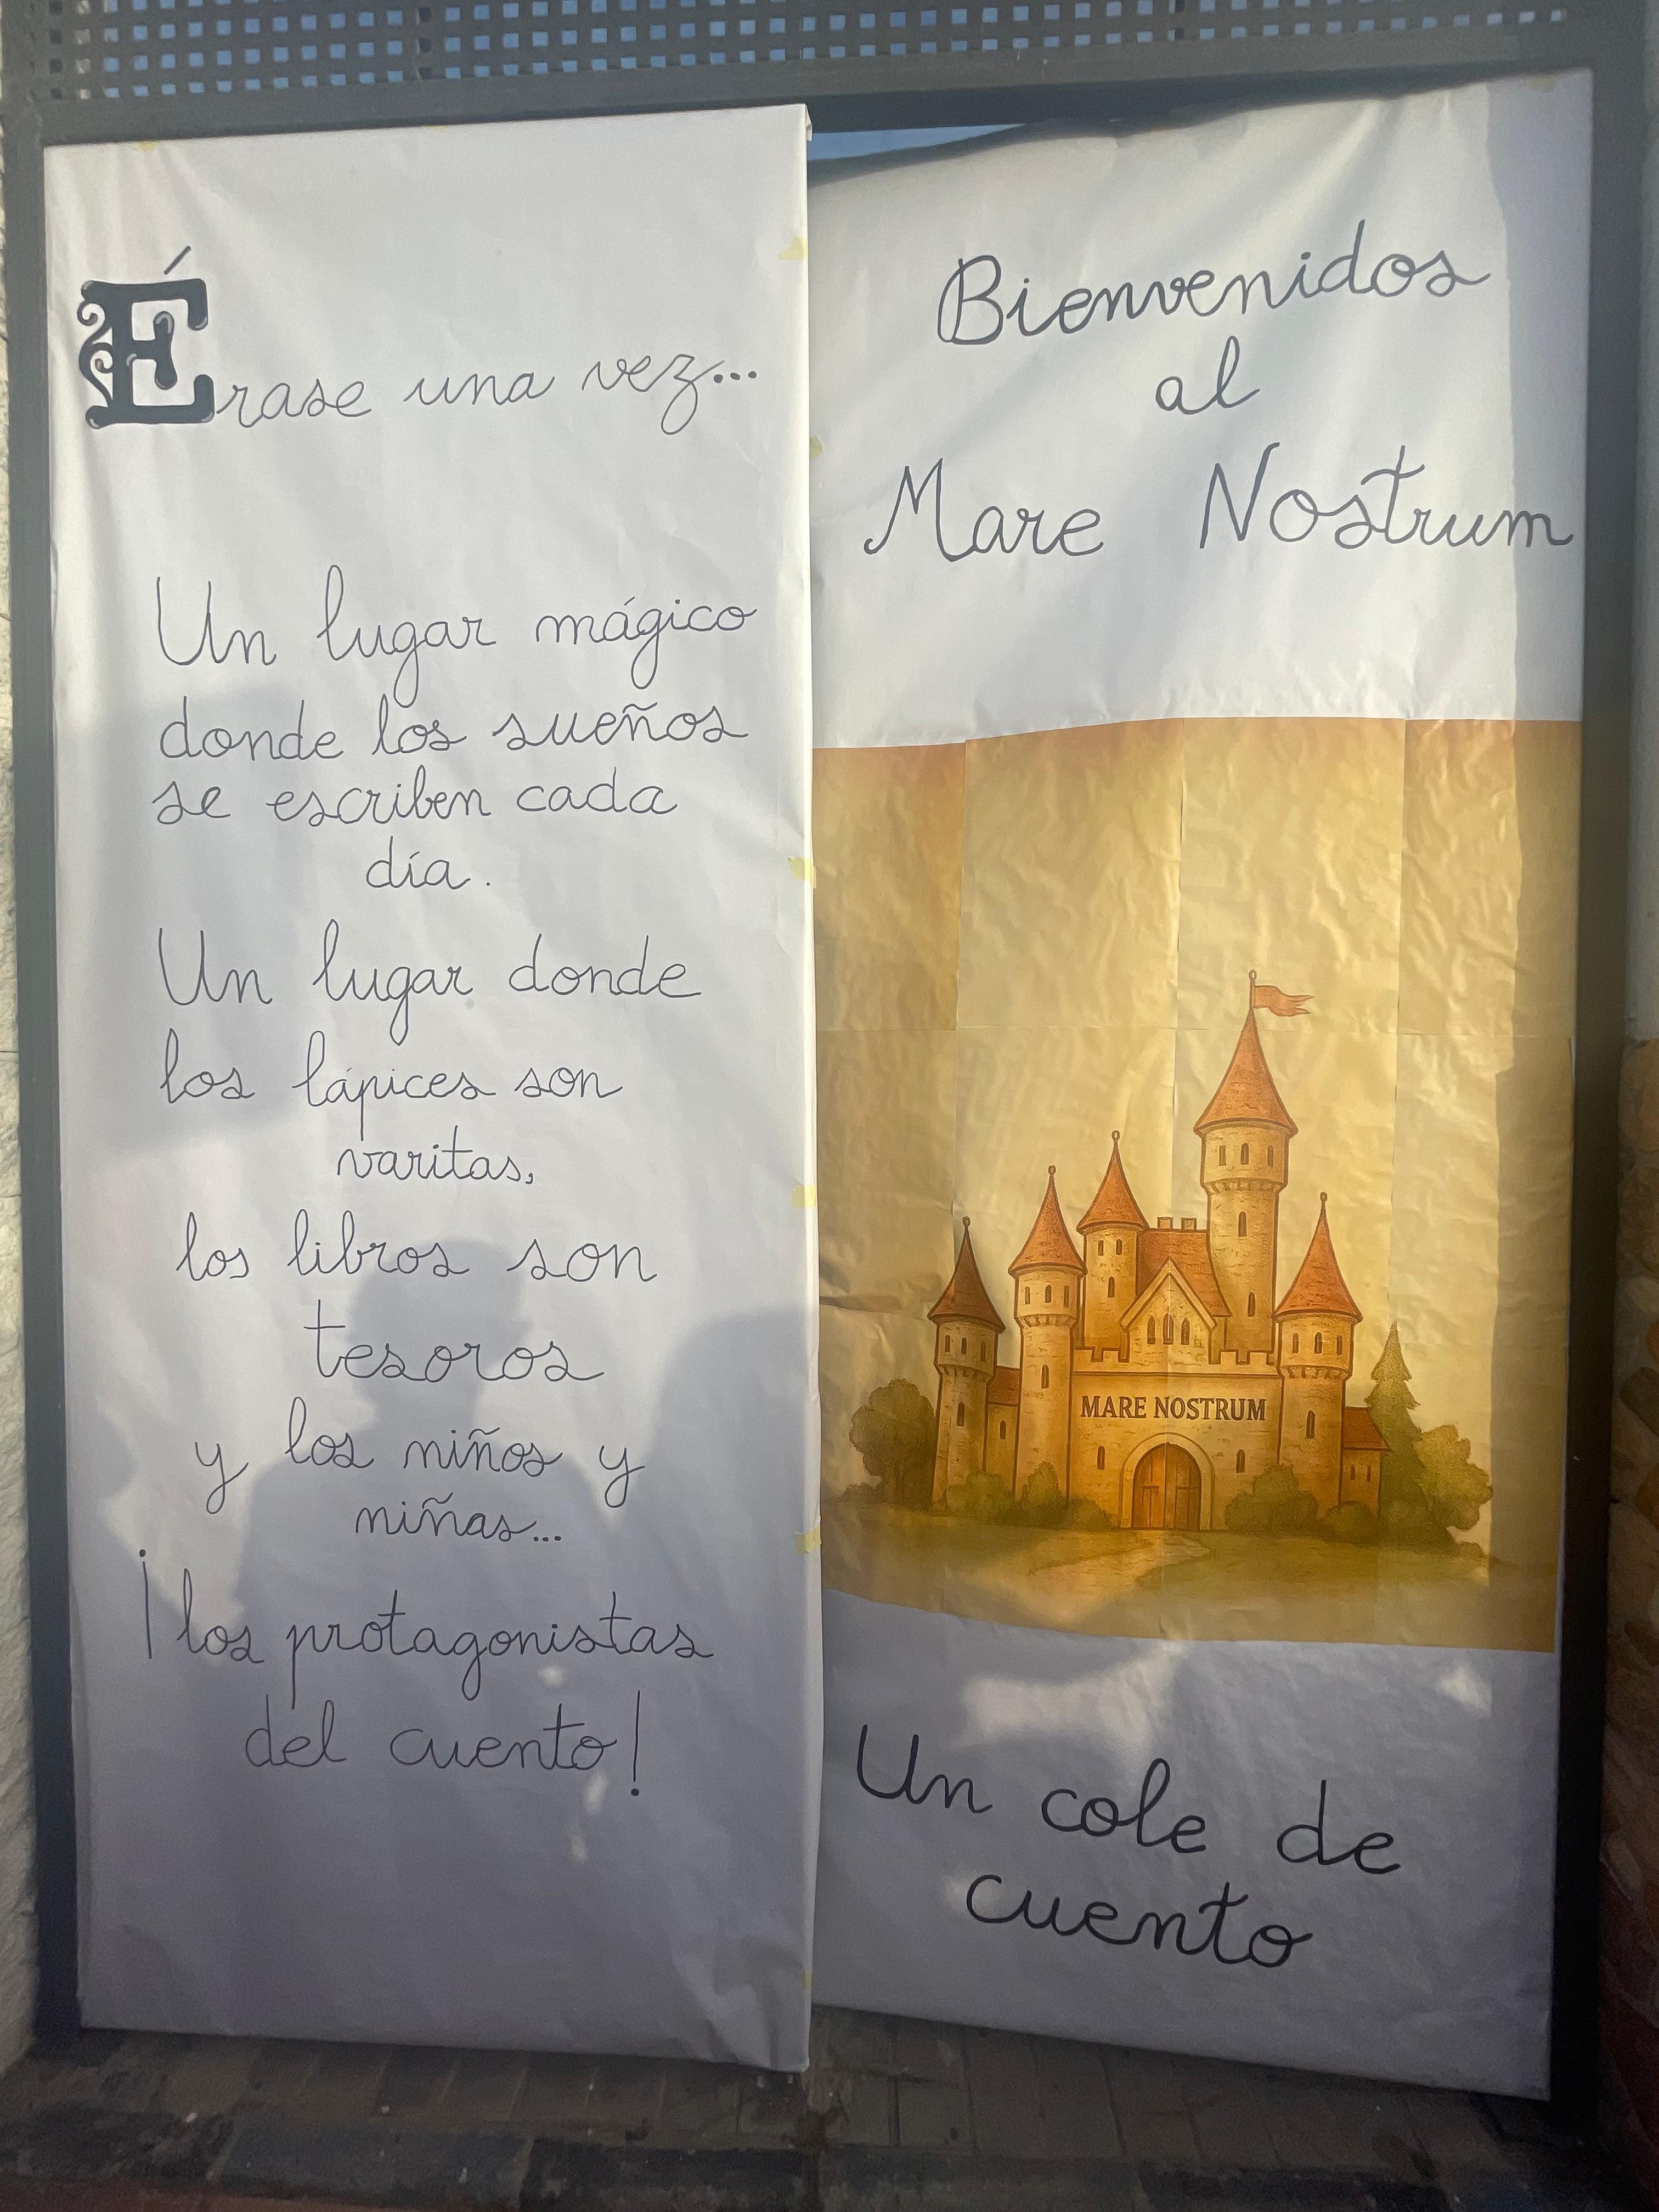 Érase una vez...
Un lugar mágico
donde los sueños
se escriben cada
día.
Un lugar donde
los lápices son
varitas,
los libros son
tesoros
y los niños y
niñas...
¡los protagonistas
del cuento!
Bienvenidos
al
Mare Nostrum
MARE NOSTRUM
Un cole de
cuento